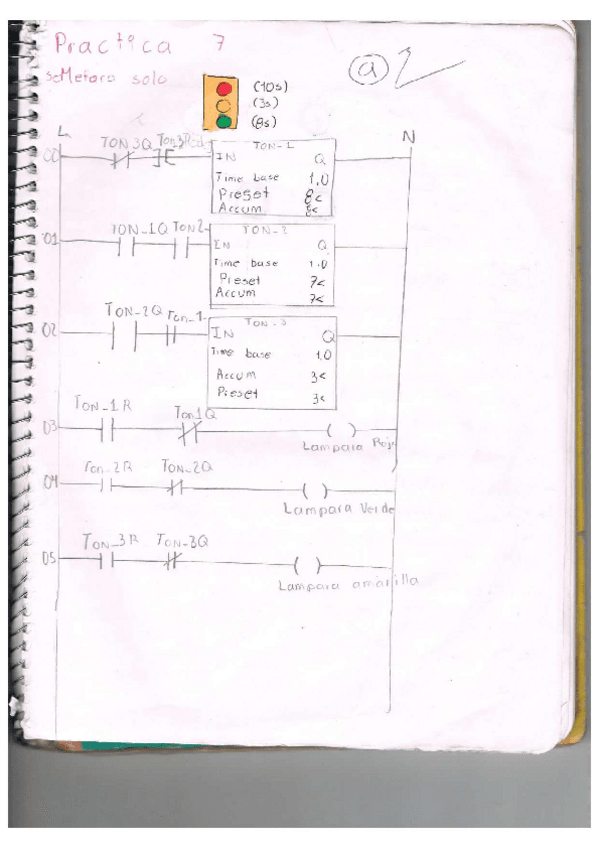 Practica 7
seMeforo solo
a 2
(10s)
(3s)
(8s)
L N
TON3Q
00 TON-1
IN Q
Time base 1,0
Preset 8<
Accum 8<
TON_1Q TON2-
01 TON-2
IN Q
Time base 1.0
Preset 7<
Accum 7<
TON_2Q Ton_1-
02 TON-3
IN Q
Time base 10
Accum 3<
Preset 3<
TON_1R Ton1Q
03 ( )
Lampara Roja
Ton_2R TON_2Q
04 ( )
Lampara Verde
TON_3R TON_3Q
05 ( )
Lampara amarilla